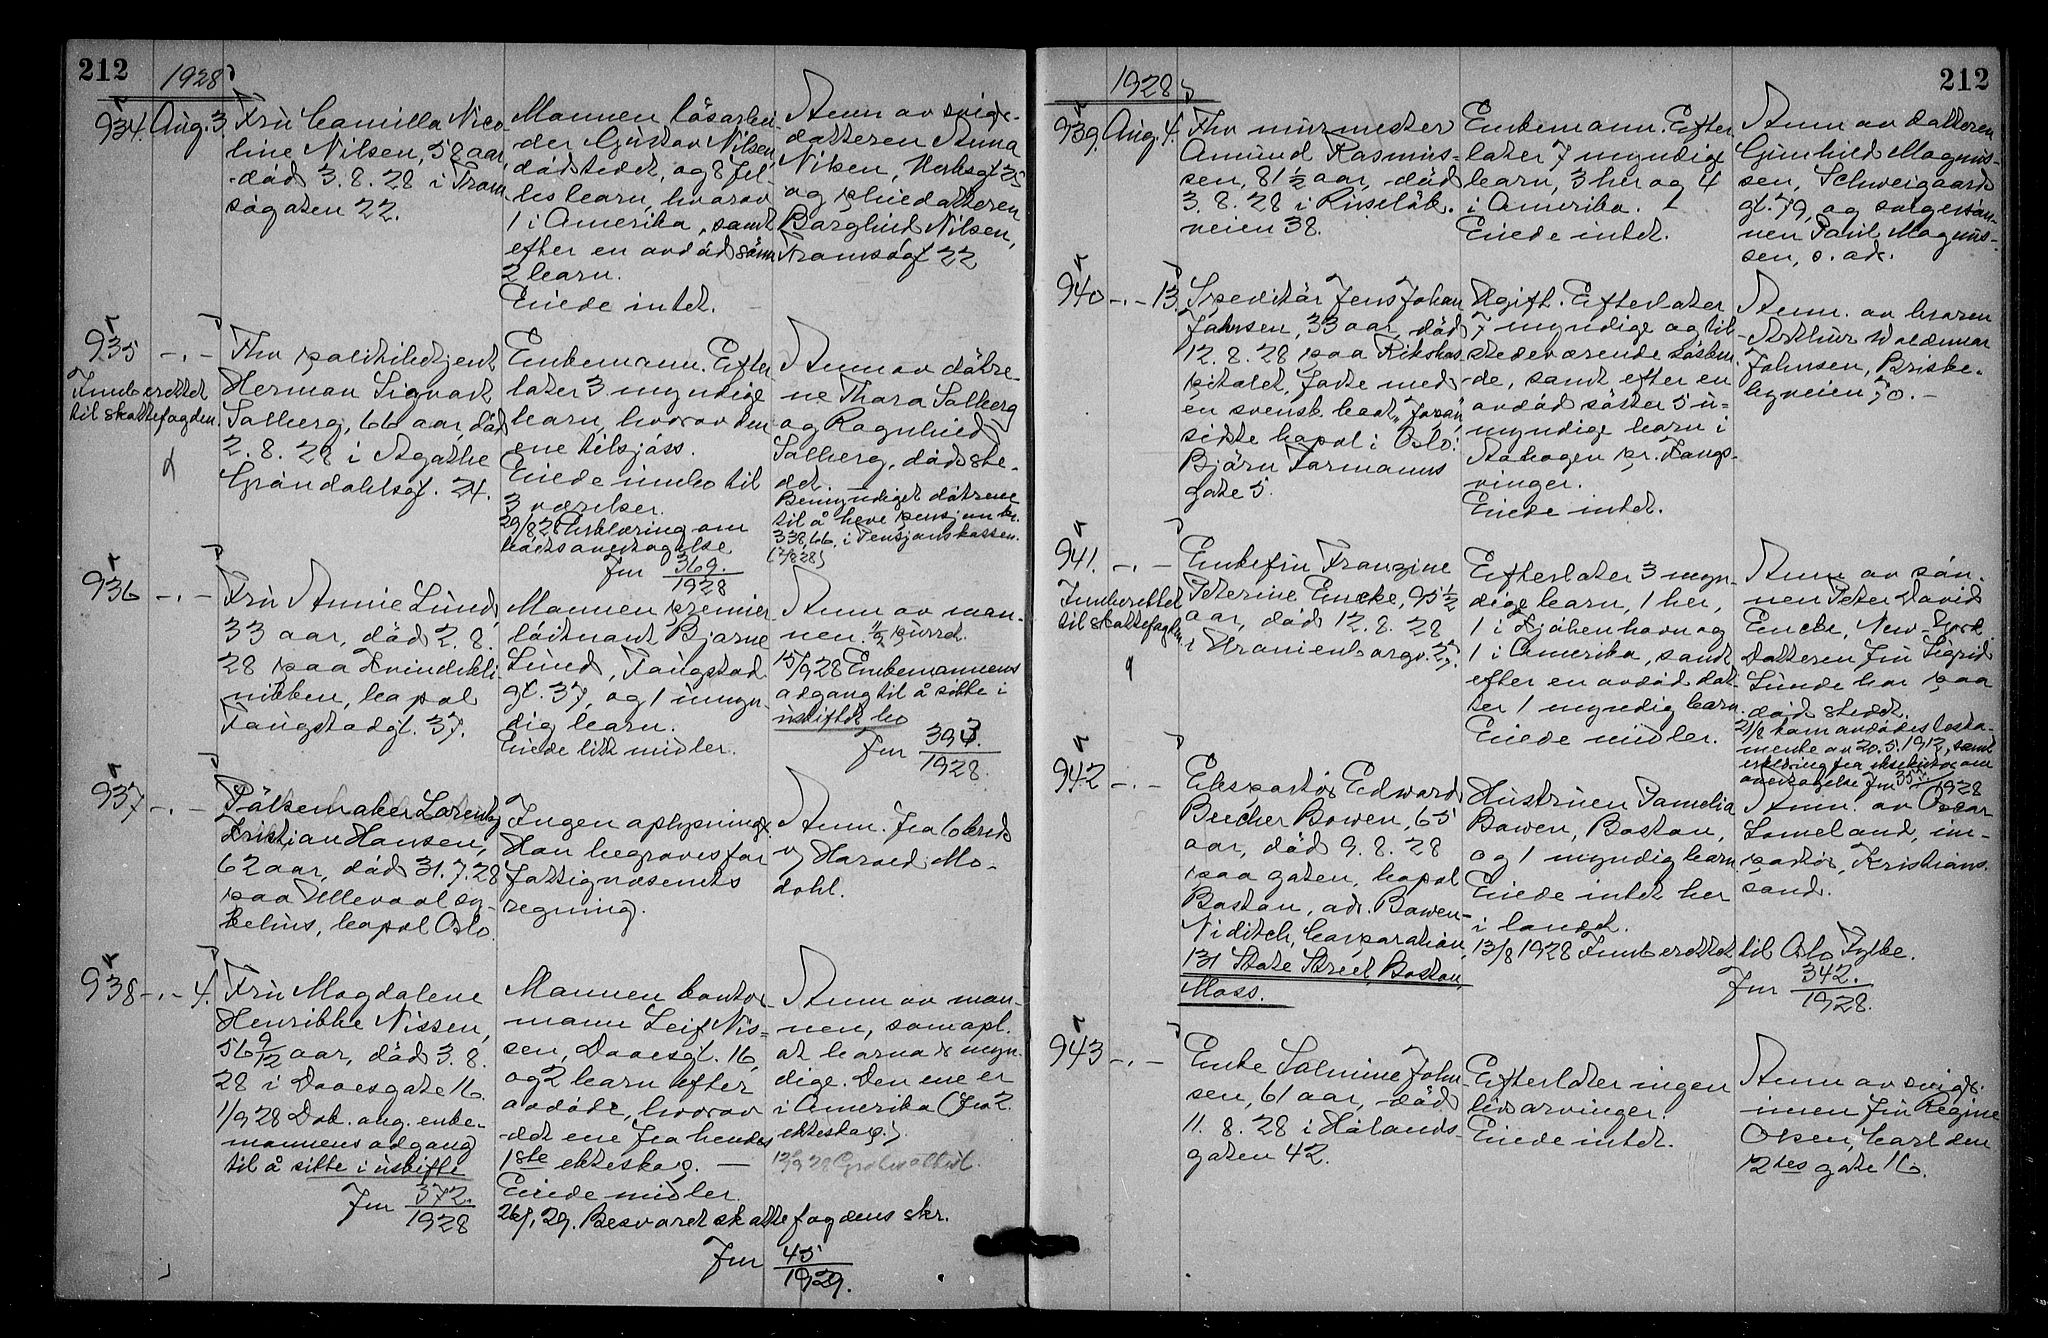 212
1928
934. Aug. 3.
Fru Camilla Nico-
line Nilsen, 58 aar,
död 3.8.28 i Trom
sögaten 22.
Mannen lösarbei-
der Gustav Nilsen,
dödstedet, og 8 fel-
les barn, hvorav
1 i Amerika, samt
efter en avdöd sönn
2 barn.
Eiede intet.
Anm. av sviger-
datteren Anna
Nilsen,
og pleiedatteren
Borghild Nilsen,
Tromsögt 22
935 -.-
Innberettet
til skattefogden.
Fhv politibetjent
Herman Sigvart
Solberg, 66 aar, död
2.8.28 i Agathe
Gröndahlsgt. 24.
Enkemann. Efter
later 3 myndige
barn, hvorav den
ene tilsjöss.
Eiede innbo til
3 værelser.
29/8 28 Erklæring om
boets overtagelse
Jnr 369.
1928
Anm av dötre-
ne Thora Solberg
og Ragnhild
Solberg, dödsste-
det.
Bemyndiget dötrene
til å heve pensjon kr.
338,66. i Pensjonskassen.
(7/8 28)
936 -.-
Fru Annie Lund,
33 aar, död 2.8.
28 paa Kvindekli
nikken, bopæl
Fougstadgt. 37.
Mannen premier
löitnant Bjarne
Lund, Fougstad
gt. 37, og 1 umyn-
dig barn.
Eiede litt midler.
Anm av man-
nen. 11/9 purret.
15/9 28 Enkemannens
adgang til å sitte i
uskiftet bo
Jnr 393.
1928.
937 -.-
Pölsemaker Lorentz
Kristian Hansen,
62 aar, död 31.7.28
paa Ullevaal sy-
kehus, bopæl Oslo.
Ingen oplysninger.
Han begraves for
fattigvæsenets
regning.
Anm. fra
v Harald Mo-
dahl.
938 -.- 4.
Fru Magdalene
Henrikke Nissen,
56 9/12 aar, död 3.8.
28 i Daaesgate 16.
1/9 28 Dok. ang. enke-
mannens adgang
til å sitte i uskifte
Jnr 372.
1928
Mannen kontor
mann Leif Nis-
sen, Daaesgt. 16,
og 2 barn efter
avdöde, hvorav
det ene fra hendes
1ste ekteskap. —
Eiede midler.
26/1, 29. Besvaret skattefogdens skr.
Jnr 45
1929.
Anm av man-
nen, som opl.
at barna er myn-
dige. Den ene er
i Amerika (fra 2.
ekteskap).
212
1928
939. Aug. 4.
Fhv murmester
Amund Rasmus-
sen, 81 1/2 aar, död
3.8.28 i Ruselök-
veien 38.
Enkemann. Efter
later 7 myndige
barn, 3 her og 4
i Amerika.
Eiede intet.
Anm av datteren
Gunhild Magnus-
sen, Schweigaards
gt. 79, og svigersön-
nen Paul Magnus-
sen, s. adr.
940 -.- 13.
Speditör Jens Johan
Johnsen, 33 aar, död
12.8.28 paa Rikshos
pitalet, forte med
en svensk baat
sidste bopæl i Oslo:
Björn Farmanns
gate 5.
Ugift. Efterlater
7 myndige og til-
stedeværende søsken
de, samt efter en
avdöd söster 5 u-
myndige barn i
Aabogen pr. Kongs-
vinger.
Eiede intet.
Anm. av broren
Arthur Waldemar
Johnsen, Briske-
byveien 70. -
941. -.-
Innberettet
til skattefogden
Enkefru Franzine
Peterine Encke, 95 1/2
aar, död 12.8.28
i Uranienborgv. 27.
Efterlater 3 myn-
dige barn, 1 her,
1 i Kjöbenhavn og
1 i Amerika, samt
efter en avdöd dat-
ter 1 myndig barn.
Eiede midler.
Anm av sön-
nen Peter David
Encke, New-York.
Datteren fru Sigrid
Lunde bor paa
dödsstedet.
21/8 kom avdödes testa-
mente av 20.5.1912, samt
erklæring fra eksekutor om
overtagelse Jnr 357/1928
942 -.-
Eksportör Edward
Beecher Bowen, 65
aar, död 9.8.28
paa gaten, bopæl
Boston, adr. Bowen-
Niditch, Corporation,
131 State Street, Boston,
Mass.
Hustruen Pamelia
Bowen, Boston,
og 1 myndig barn
Eiede intet her
i landet.
13/8 1928 Innberettet til Oslo Fylke.
Jnr 342.
1928.
Anm. av Oscar
Lomeland, im-
portör, Kristians-
sand.
943 -.-
Enke Solmine John-
sen, 61 aar, död
11.8.28 i Hålands-
gaten 42.
Efterlater ingen
livsarvinger.
Eiede intet.
Anm av sviger-
innen fru Regine
Olsen, Carl den
12tes gate 16.